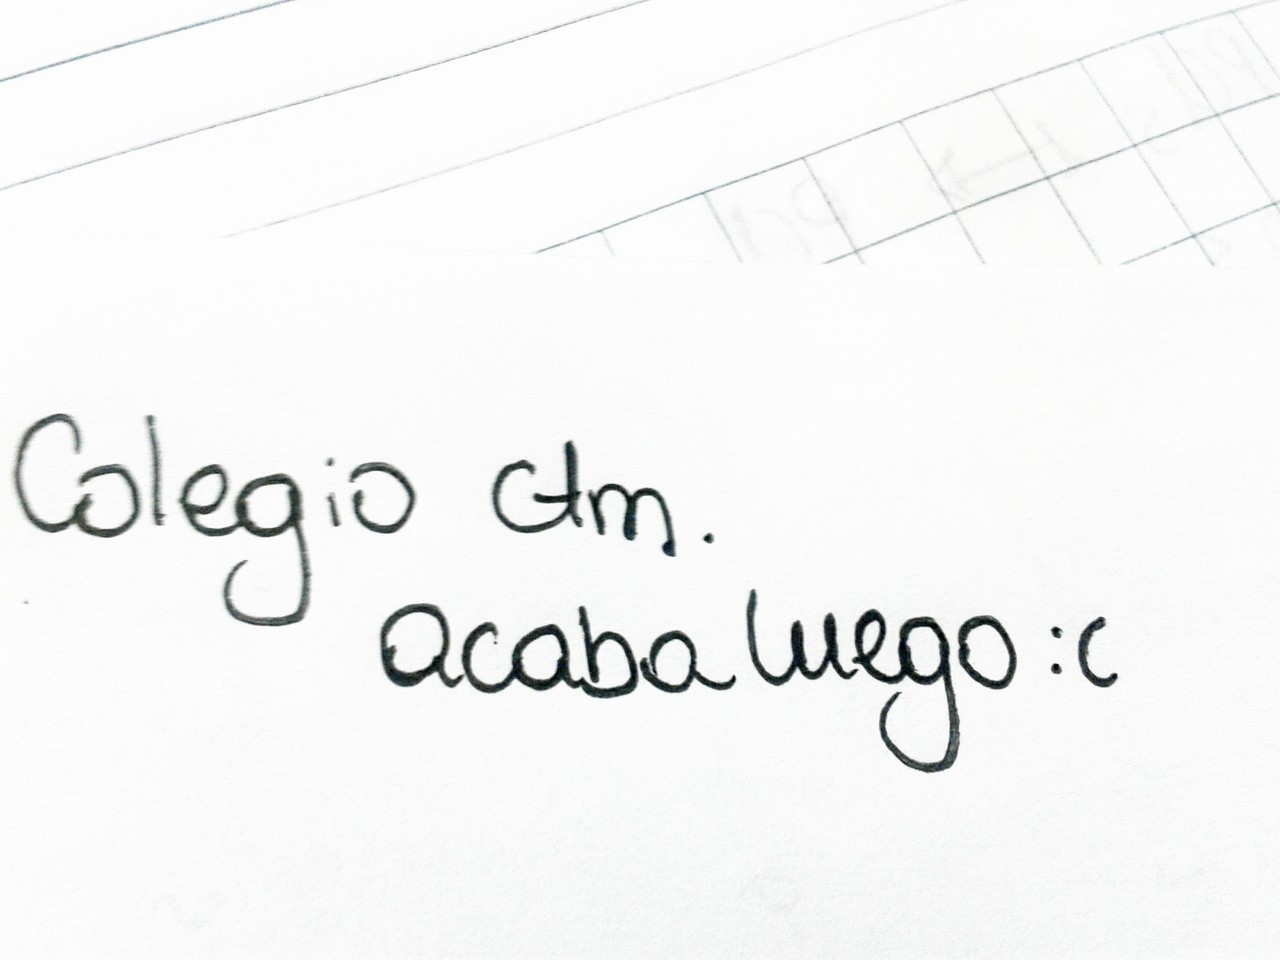 Colegio ctm.
acaba luego :c